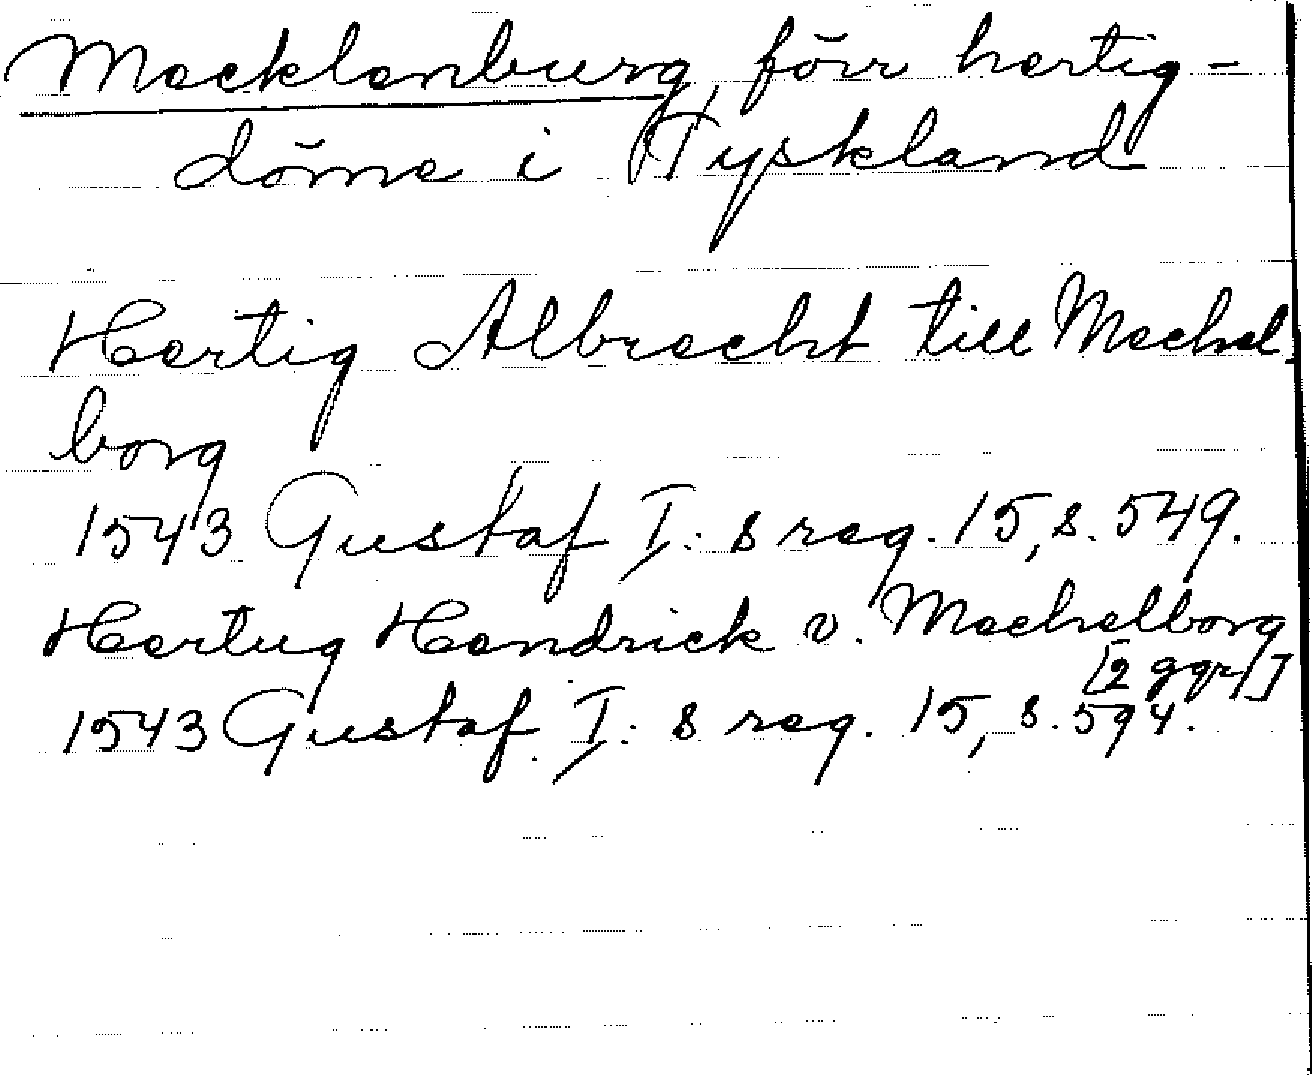 Mecklenburg, förr hertig-
döme i Tyskland
Hertig Albrecht till Mechel-
borg
1543 Gustaf I:s reg. 15, s. 549.
Hertug Hendrick v. Mechelborg
[2 ggr]
1543 Gustaf I:s reg. 15, s. 594.